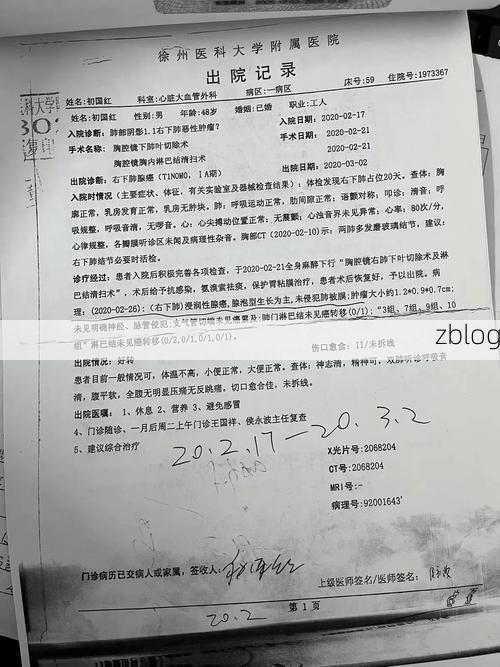 徐州医科大学附属医院
出院记录
姓名:初国红 科室:心脏大血管外科 病区:一病区 床号:59 住院号:1973367
姓名:初国红 性别:男 年龄:48岁 婚姻:已婚 职业:工人
入院诊断:肺部阴影1.1右下肺恶性肿瘤? 入院日期:2020-02-17
手术名称:胸腔镜下肺叶切除术 手术日期:2020-02-21
胸腔镜胸内淋巴结清扫术 2020-02-21
出院诊断:右下肺腺癌(T1N0M0,ⅠA期) 出院日期:2020-03-02
入院时情况(主要症状、体征,有关实验室及器械检查结果):体检发现右下肺占位20天。查体:胸
廓正常,乳房发育正常,乳房无肿块。肺:呼吸运动正常,肋间隙正常;语颤对称;叩诊:清音;呼
吸规整,呼吸音清,无啰音。心:心尖搏动位置正常;无震颤;心浊音界未见异常;心率:80次/分,
心律规整,各瓣膜听诊区未闻及病理性杂音。胸部CT(2020-02-10)示:两肺多发磨玻璃结节,建议:
右下肺结节必要时活检。
诊疗经过:患者入院后积极完善各项检查,于2020-02-21全身麻醉下行“胸腔镜右肺下叶切除术及淋
巴结清扫术”,术后给予抗感染,氨溴索祛痰,保护胃粘膜治疗,患者术后恢复好,予以出院。病
理:(2020-02-26):(右下肺)浸润性腺癌,腺泡型生长为主,未侵犯肺被膜;肿瘤大小约1.2*0.9*0.7cm;
未见明确神经、脉管侵犯;支气管切端未见癌累及;肺门淋巴结未见癌转移(0/1);“3组、7组、9组、10
组”淋巴结未见癌转移(0/2,0/1,0/1,0/1)。
zblog
出院情况:好转 伤口愈合:II/未拆线
患者目前一般情况可,体温不高,小便正常,大便正常。查体:神志清,精神可,双肺听诊呼吸音
清,腹平软,全腹无明显压痛无反跳痛。切口愈合佳,未拆线。
出院医嘱:1、休息 2、营养 3、避免感冒
4、门诊随诊、一月后周二上午门诊王国祥、侯永波主任复查
5、建议综合治疗
20.2.17—20.3.2
X光片号:2068204
CT号:2068204
MRI号:-
病理号:92001643'
门诊病历已交病人或家属,签收人:
上级医师签名/医师签名:
第1页
20.2